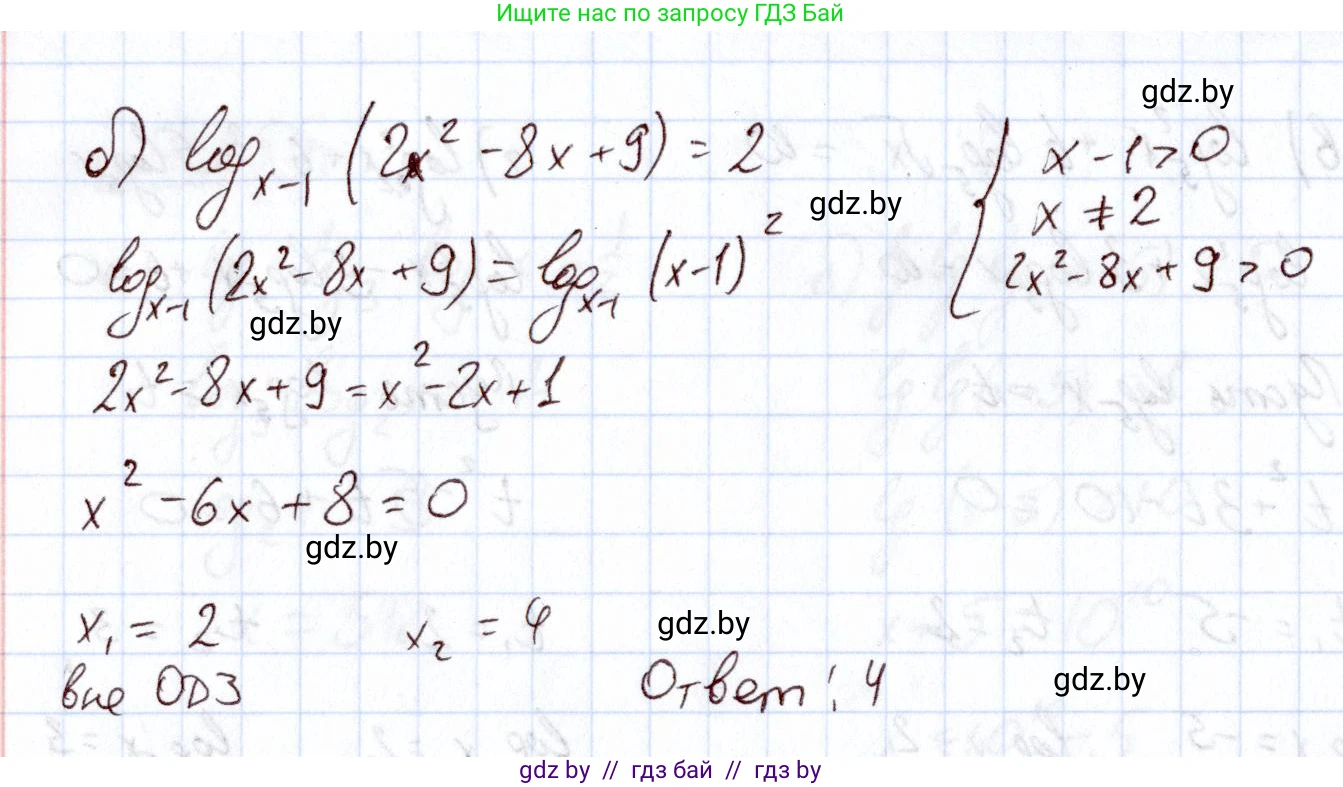 Ищите нас по запросу ГДЗ Бай
gdz.by
б) log_{x-1} (2x² - 8x + 9) = 2
{ x - 1 > 0
x ≠ 2
2x² - 8x + 9 > 0
gdz.by
log_{x-1} (2x² - 8x + 9) = log_{x-1} (x-1)²
gdz.by
2x² - 8x + 9 = x² - 2x + 1
x² - 6x + 8 = 0
gdz.by
x₁ = 2 x₂ = 4
gdz.by
вне ОДЗ
Ответ: 4
gdz.by
gdz by // гдз бай // гдз by